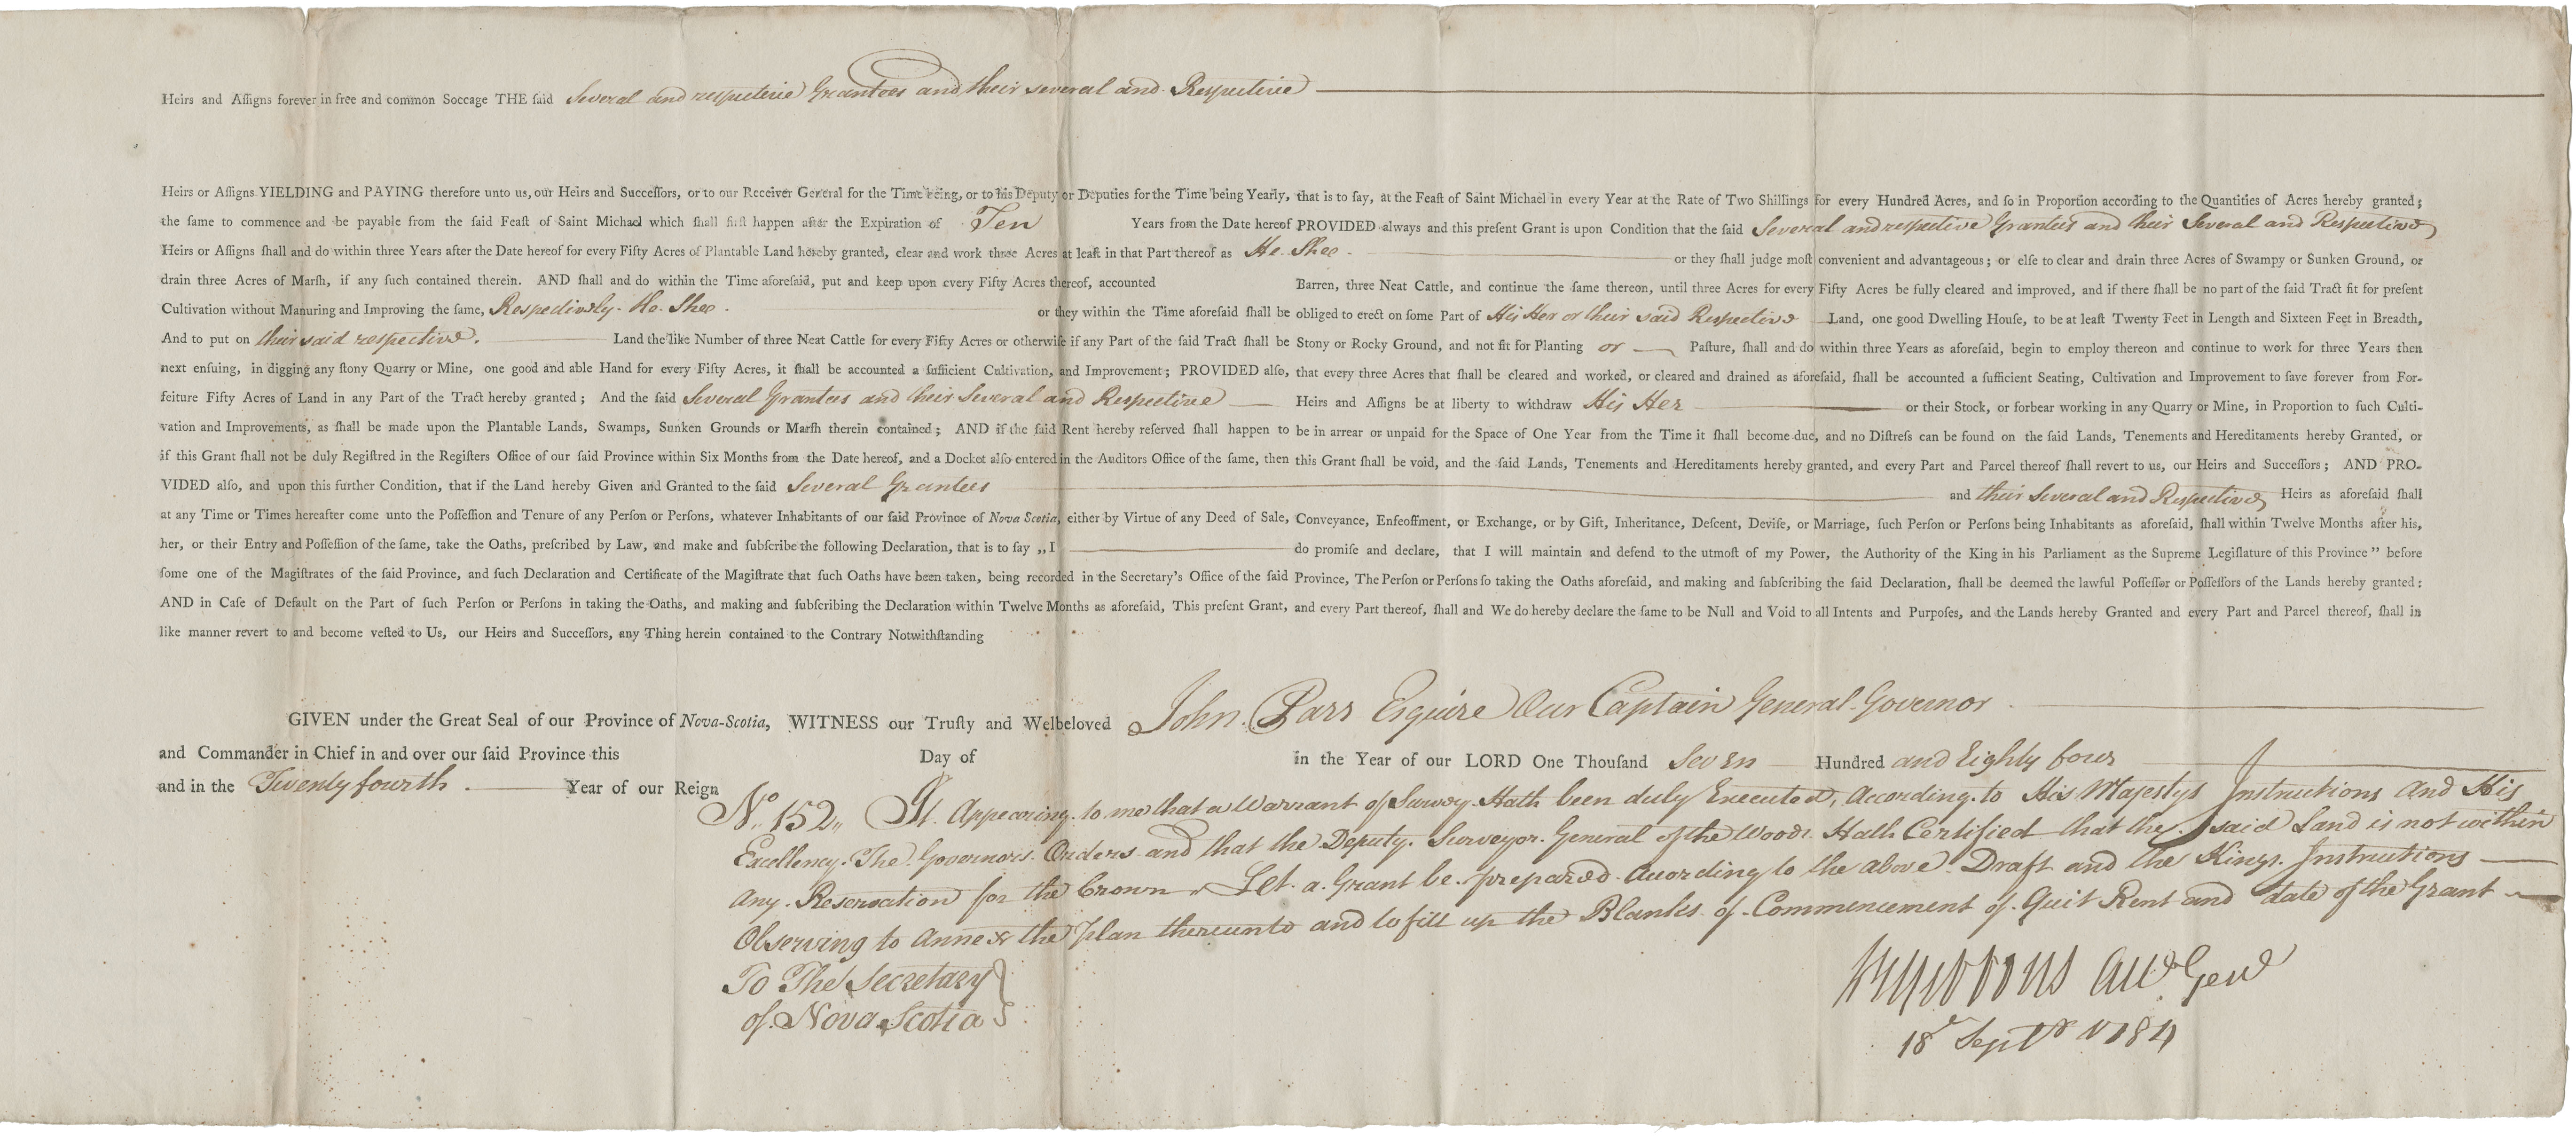 Heirs and Aſſigns forever in free and common Soccage THE ſaid Several and respective Grantees and their several and Respective
Heirs or Aſſigns YIELDING and PAYING therefore unto us, our Heirs and Succeſſors, or to our Receiver General for the Time being, or to his Deputy or Deputies for the Time being Yearly, that is to ſay, at the Feaſt of Saint Michael in every Year at the Rate of Two Shillings for every Hundred Acres, and ſo in Proportion according to the Quantities of Acres hereby granted;
the ſame to commence and be payable from the ſaid Feaſt of Saint Michael which ſhall firſt happen after the Expiration of Ten Years from the Date hereof PROVIDED always and this preſent Grant is upon Condition that the ſaid Several and respective Grantees and their Several and Respective
Heirs or Aſſigns ſhall and do within three Years after the Date hereof for every Fifty Acres of Plantable Land hereby granted, clear and work three Acres at leaſt in that Part thereof as He. Shee or they ſhall judge moſt convenient and advantageous; or elſe to clear and drain three Acres of Swampy or Sunken Ground, or
drain three Acres of Marſh, if any ſuch contained therein. AND ſhall and do within the Time aforeſaid, put and keep upon every Fifty Acres thereof, accounted Barren, three Neat Cattle, and continue the ſame thereon, until three Acres for every Fifty Acres be fully cleared and improved, and if there ſhall be no part of the ſaid Tract fit for preſent
Cultivation without Manuring and Improving the ſame, Respectively. He. Shee. or they within the Time aforeſaid ſhall be obliged to erect on ſome Part of His Her or their said Respective Land, one good Dwelling Houſe, to be at leaſt Twenty Feet in Length and Sixteen Feet in Breadth,
And to put on their said respective. Land the like Number of three Neat Cattle for every Fifty Acres or otherwiſe if any Part of the ſaid Tract ſhall be Stony or Rocky Ground, and not fit for Planting or Paſture, ſhall and do within three Years as aforeſaid, begin to employ thereon and continue to work for three Years then
next enſuing, in digging any ſtony Quarry or Mine, one good and able Hand for every Fifty Acres, it ſhall be accounted a ſufficient Cultivation, and Improvement; PROVIDED alſo, that every three Acres that ſhall be cleared and worked, or cleared and drained as aforeſaid, ſhall be accounted a ſufficient Seating, Cultivation and Improvement to ſave forever from For-
feiture Fifty Acres of Land in any Part of the Tract hereby granted; And the ſaid Several Grantees and their Several and Respective Heirs and Aſſigns be at liberty to withdraw His Her or their Stock, or forbear working in any Quarry or Mine, in Proportion to ſuch Culti-
vation and Improvements, as ſhall be made upon the Plantable Lands, Swamps, Sunken Grounds or Marſh therein contained; AND if the ſaid Rent hereby reſerved ſhall happen to be in arrear or unpaid for the Space of One Year from the Time it ſhall become due, and no Diſtreſs can be found on the ſaid Lands, Tenements and Hereditaments hereby Granted, or
if this Grant ſhall not be duly Regiſtred in the Regiſters Office of our ſaid Province within Six Months from the Date hereof, and a Docket alſo entered in the Auditors Office of the ſame, then this Grant ſhall be void, and the ſaid Lands, Tenements and Hereditaments hereby granted, and every Part and Parcel thereof ſhall revert to us, our Heirs and Succeſſors; AND PRO-
VIDED alſo, and upon this further Condition, that if the Land hereby Given and Granted to the ſaid Several Grantees and their Several and Respective Heirs as aforeſaid ſhall
at any Time or Times hereafter come unto the Poſſeſſion and Tenure of any Perſon or Perſons, whatever Inhabitants of our ſaid Province of Nova Scotia, either by Virtue of any Deed of Sale, Conveyance, Enfeoffment, or Exchange, or by Gift, Inheritance, Deſcent, Deviſe, or Marriage, ſuch Perſon or Perſons being Inhabitants as aforeſaid, ſhall within Twelve Months after his,
her, or their Entry and Poſſeſſion of the ſame, take the Oaths, preſcribed by Law, and make and ſubſcribe the following Declaration, that is to ſay „I do promiſe and declare, that I will maintain and defend to the utmoſt of my Power, the Authority of the King in his Parliament as the Supreme Legiſlature of this Province" before
ſome one of the Magiſtrates of the ſaid Province, and ſuch Declaration and Certificate of the Magiſtrate that ſuch Oaths have been taken, being recorded in the Secretary's Office of the ſaid Province, The Perſon or Perſons ſo taking the Oaths aforeſaid, and making and ſubſcribing the ſaid Declaration, ſhall be deemed the lawful Poſſeſſor or Poſſeſſors of the Lands hereby granted:
AND in Caſe of Default on the Part of ſuch Perſon or Perſons in taking the Oaths, and making and ſubſcribing the Declaration within Twelve Months as aforeſaid, This preſent Grant, and every Part thereof, ſhall and We do hereby declare the ſame to be Null and Void to all Intents and Purpoſes, and the Lands hereby Granted and every Part and Parcel thereof, ſhall in
like manner revert to and become veſted to Us, our Heirs and Succeſſors, any Thing herein contained to the Contrary Notwithſtanding
GIVEN under the Great Seal of our Province of Nova-Scotia, WITNESS our Truſty and Welbeloved John Parr Esquire Our Captain General Governor
and Commander in Chief in and over our ſaid Province this Day of in the Year of our LORD One Thouſand Seven Hundred and Eighty four
and in the Twenty fourth Year of our Reign
No. 152 It Appearing to me that a Warrant of Survey Hath been duly Executed, According to His Majestys Instructions And His
Excellency The Governors Orders and that the Deputy Surveyor General of the Woods Hath Certified that the said Land is not within
any Reservation for the Crown Let a Grant be prepared According to the above Draft and the Kings Instructions
Observing to Annex the Plan thereunto and to fill up the Blanks of Commencement of Quit Rent and date of the Grant
To The Secretary
of Nova Scotia
Gibbons Att Genl
18 Septr 1784